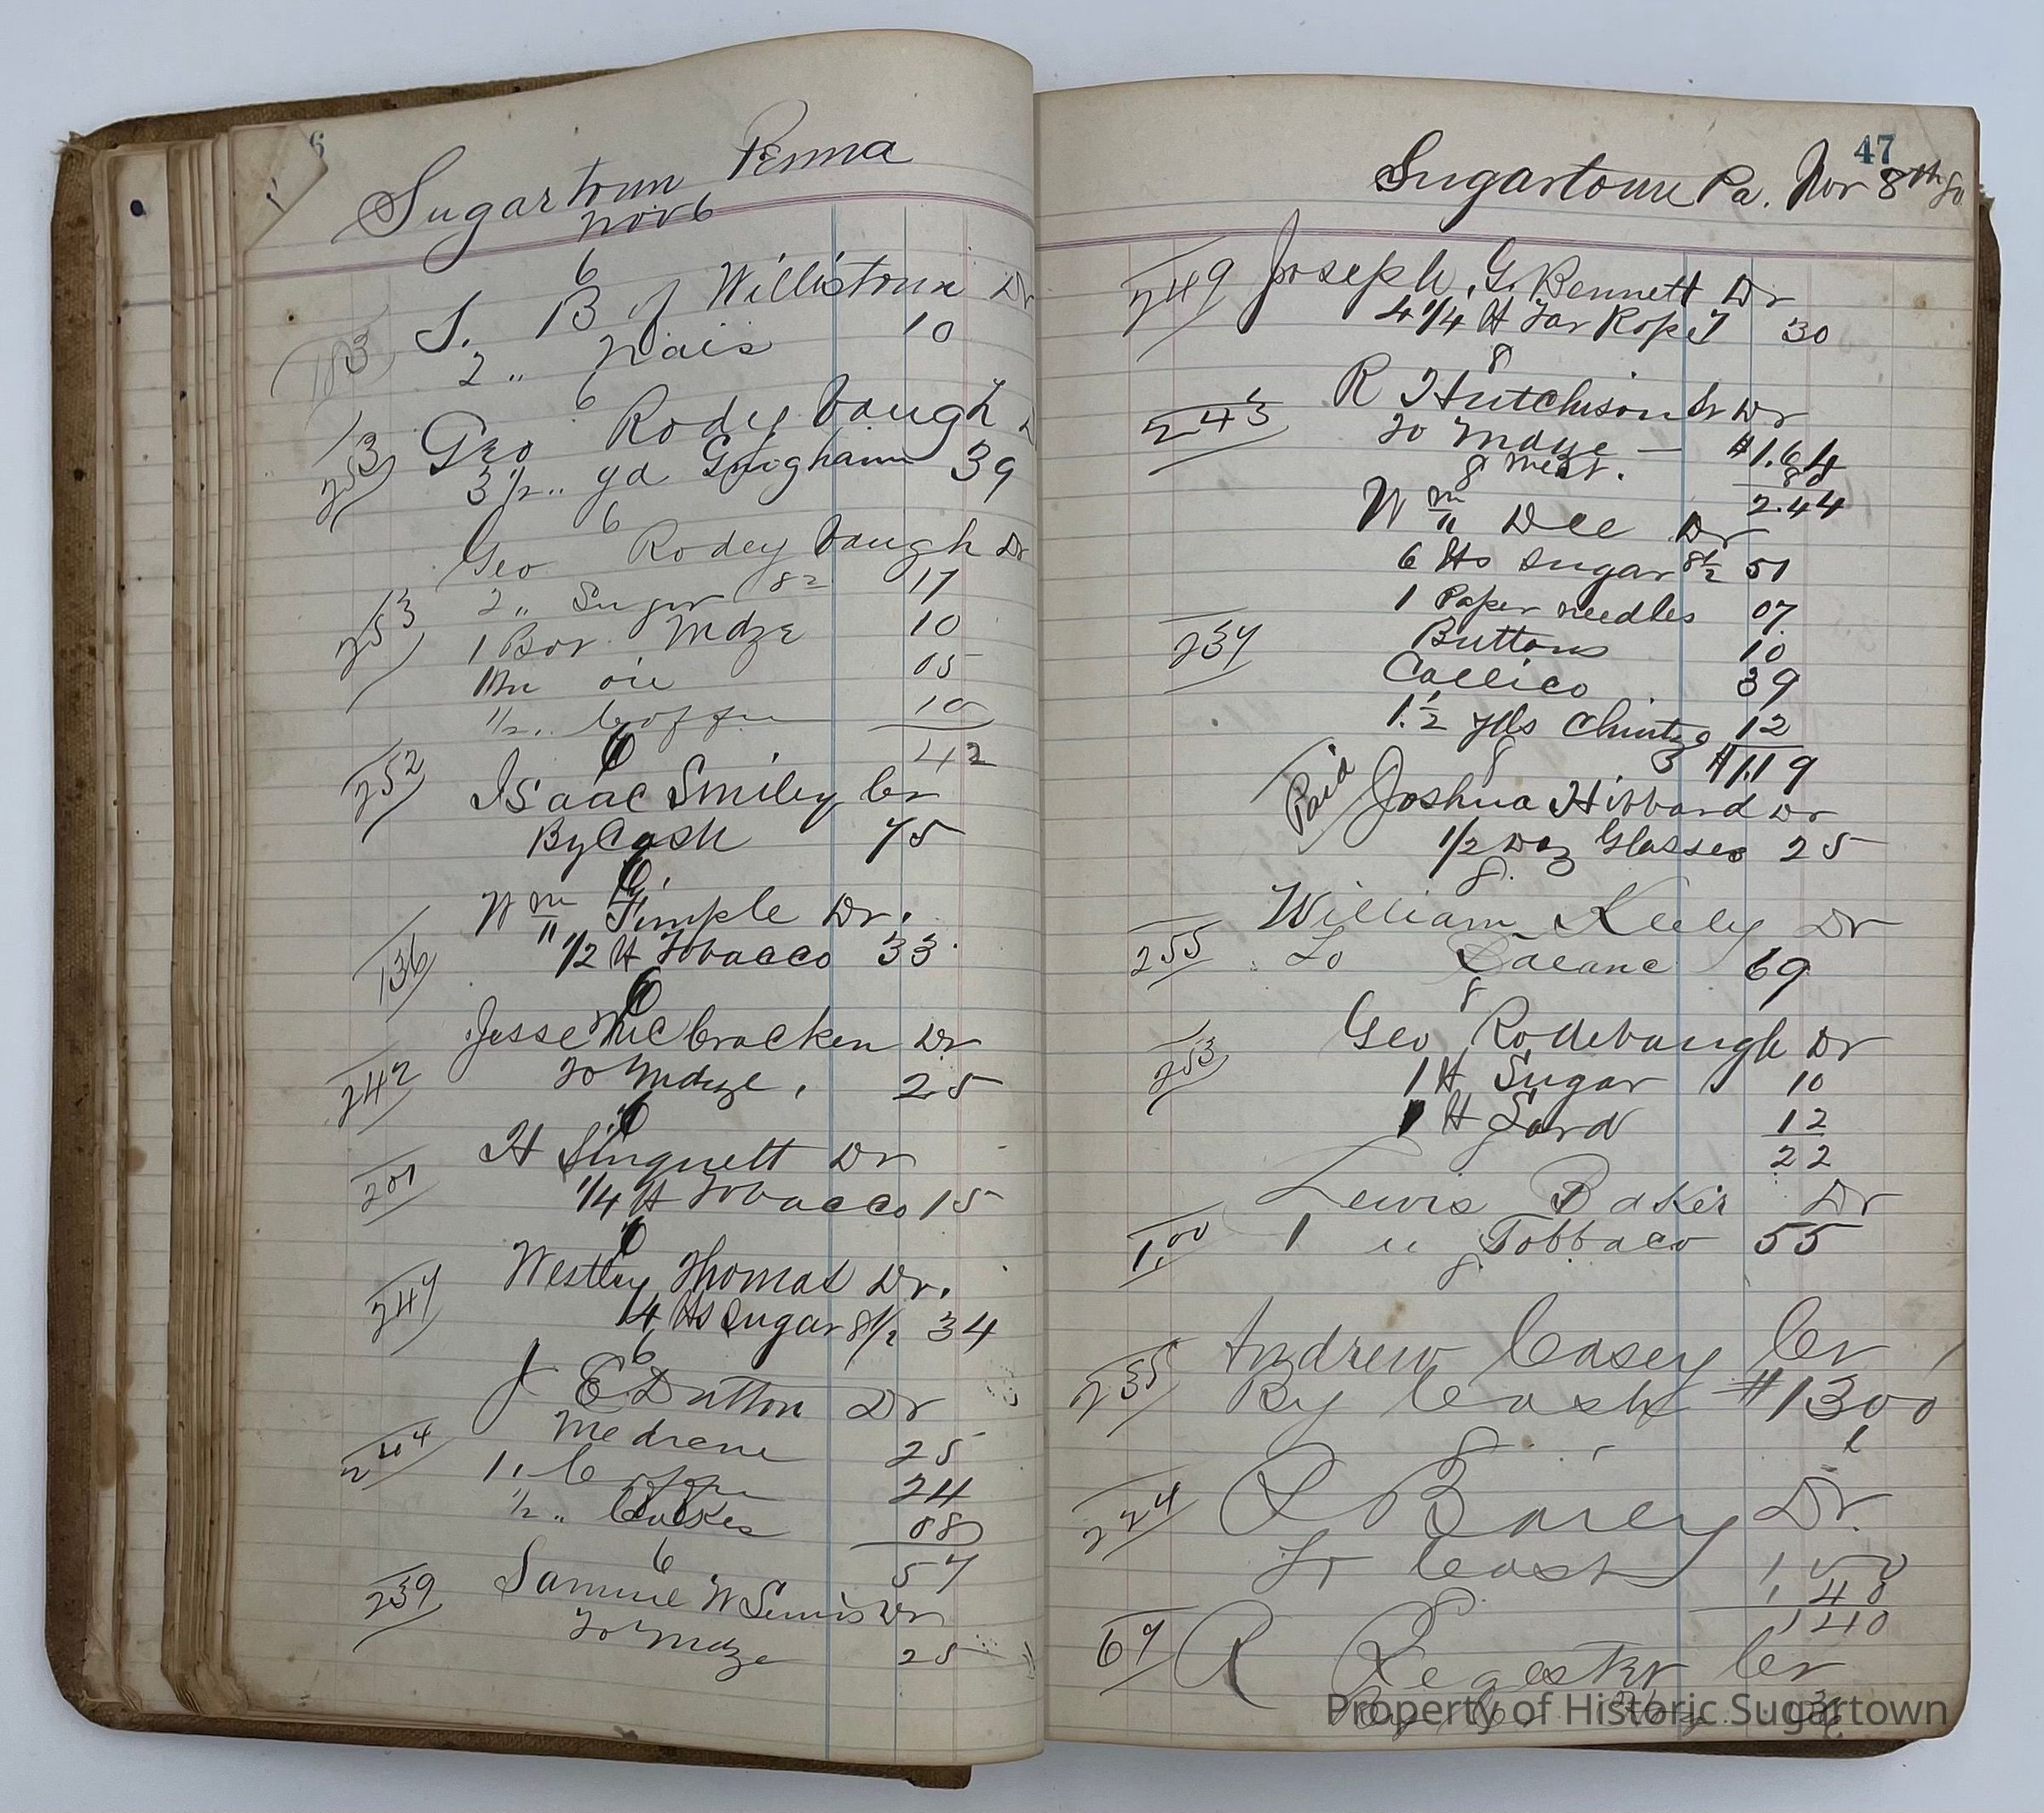 6
Sugartown Penna
Nov 6
6
183 S. B of Willistown Dr
2 " Nails 10
6
13 Geo Rodybaugh D
253 3 1/2 " yd Gingham 39
6
Geo Rodeybaugh Dr
2 " Sugar 8 1/2 17
253 1 Box Mdze 10
oil 05
1/2 " Coffee 10
42
6
252 Isaac Smiley Cr
By Cash 75
6
Wm Timple Dr.
136 1/2 lb Tobacco 33
6
Jesse McCracken Dr
242 To Mdze, 25
6
H Singuett Dr
201 1/4 lb Tobacco 15
6
Westley Thomas Dr.
247 4 lbs Sugar 8 1/2 34
6
J E Dutton Dr
Medcene 25
244 1 " Coffee 24
1/2 " Cakes 08
57
6
239 Samuel W Dr
To Mdze 25
47
Sugartown Pa. Nov 8th 80
249 Joseph. G. Bennett Dr
4 1/4 lb Tar Rope 7 30
8
R Hutchison Sr Dr
243 To Mdze — $1.64
Mdse. 80
2.44
8
Wm Dee Dr
6 lbs Sugar 8 1/2 51
1 Paper needles 07
237 Buttons 10
Callico 39
1 1/2 yds Chintz 12
$1.19
8
Paid Joshua Hibbard Dr
1/2 Doz Glasses 25
8.
William Keely Dr
255 To Balanc 69
8
Geo Rodebaugh Dr
253 1 lb Sugar 10
1 lb Lard 12
22
8
Lewis Baker Dr
1.00 1 " Tobbaco 55
8
Andrew Casey Cr
235 By Cash $1300
8
224 Dr.
To Cash 100
40
140
8
67 R Regester Cr
By
Property of Historic Sugartown